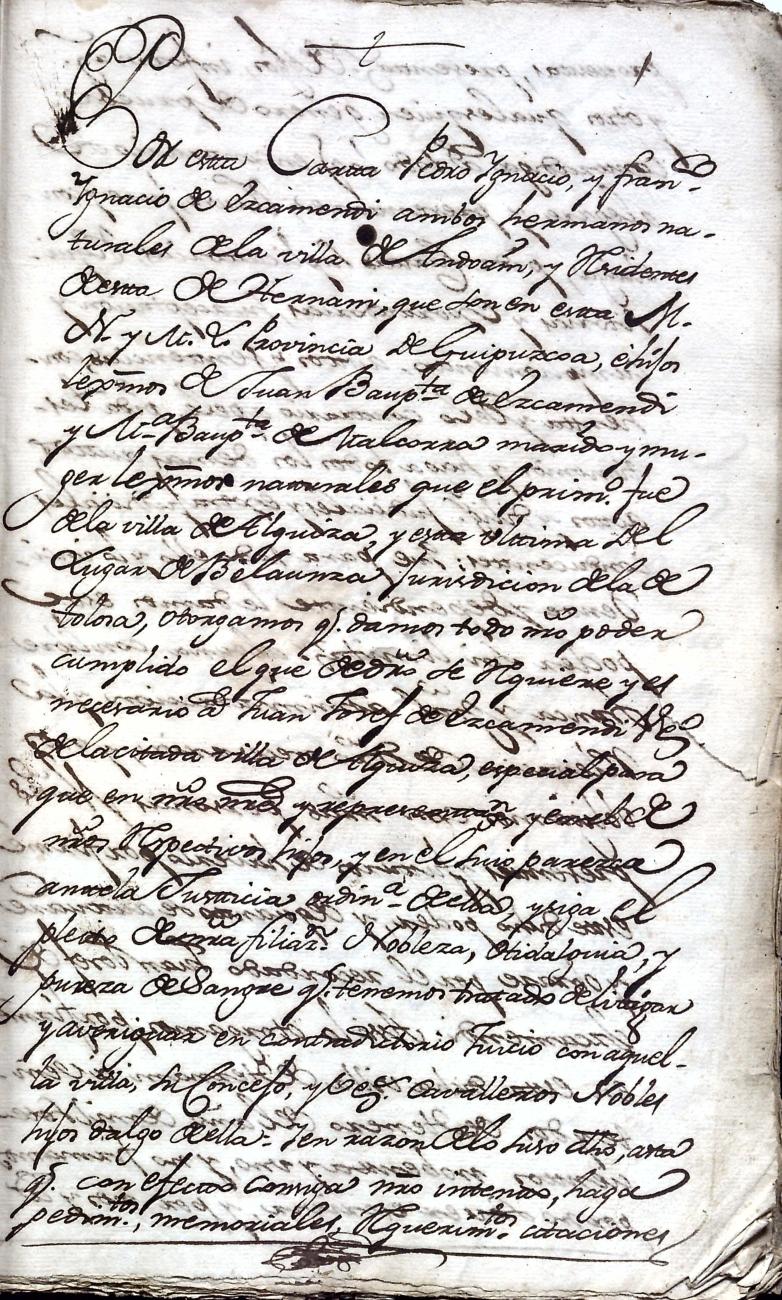 Por esta Carta Pedro Ygnacio, y Fran.co
Ygnacio de Ezcamendi ambos hermanos na-
turales de la villa de Andoain, y Residentes
de esta de Hernani, que son en esta M.
N. y M. L. Provincia de Guipuzcoa, è hijos
lexmos de Juan Baup.ta de Ezcamendi
y M.a Baup.ta de Yalcorra marido y mu-
ger lexmos naturales que el prim.o fue
de la villa de Alquiza, y esta ultima del
Lugar de Belaunza Jurisdicion de la de
tolosa, otorgamos q.e damos todo nro poder
cumplido el que de dro se Rquiere y es
necesario à Juan Josef de Ezcamendi Vez.o
de la citada villa de Alquiza, especial para
que en nro nre y representaz.n y en el de
nros Rspectivos hijos, y en el suio parezca
ante la Justicia ordin.a de ella, y siga el
pleito de nra filiaz.n Nobleza, e Hidalguia, y
pureza de Sangre q.e tenemos tratado de litigar
y averiguar en contradictorio Juicio con aque-
lla villa, su Concejo, y Vez.s Cavalleros Nobles
hijos dalgo de ella. Y en razon de lo suso dho, asta
q.e con efecto consiga nro intento, haga
pedim.tos, memoriales, Rquerim.tos citaciones